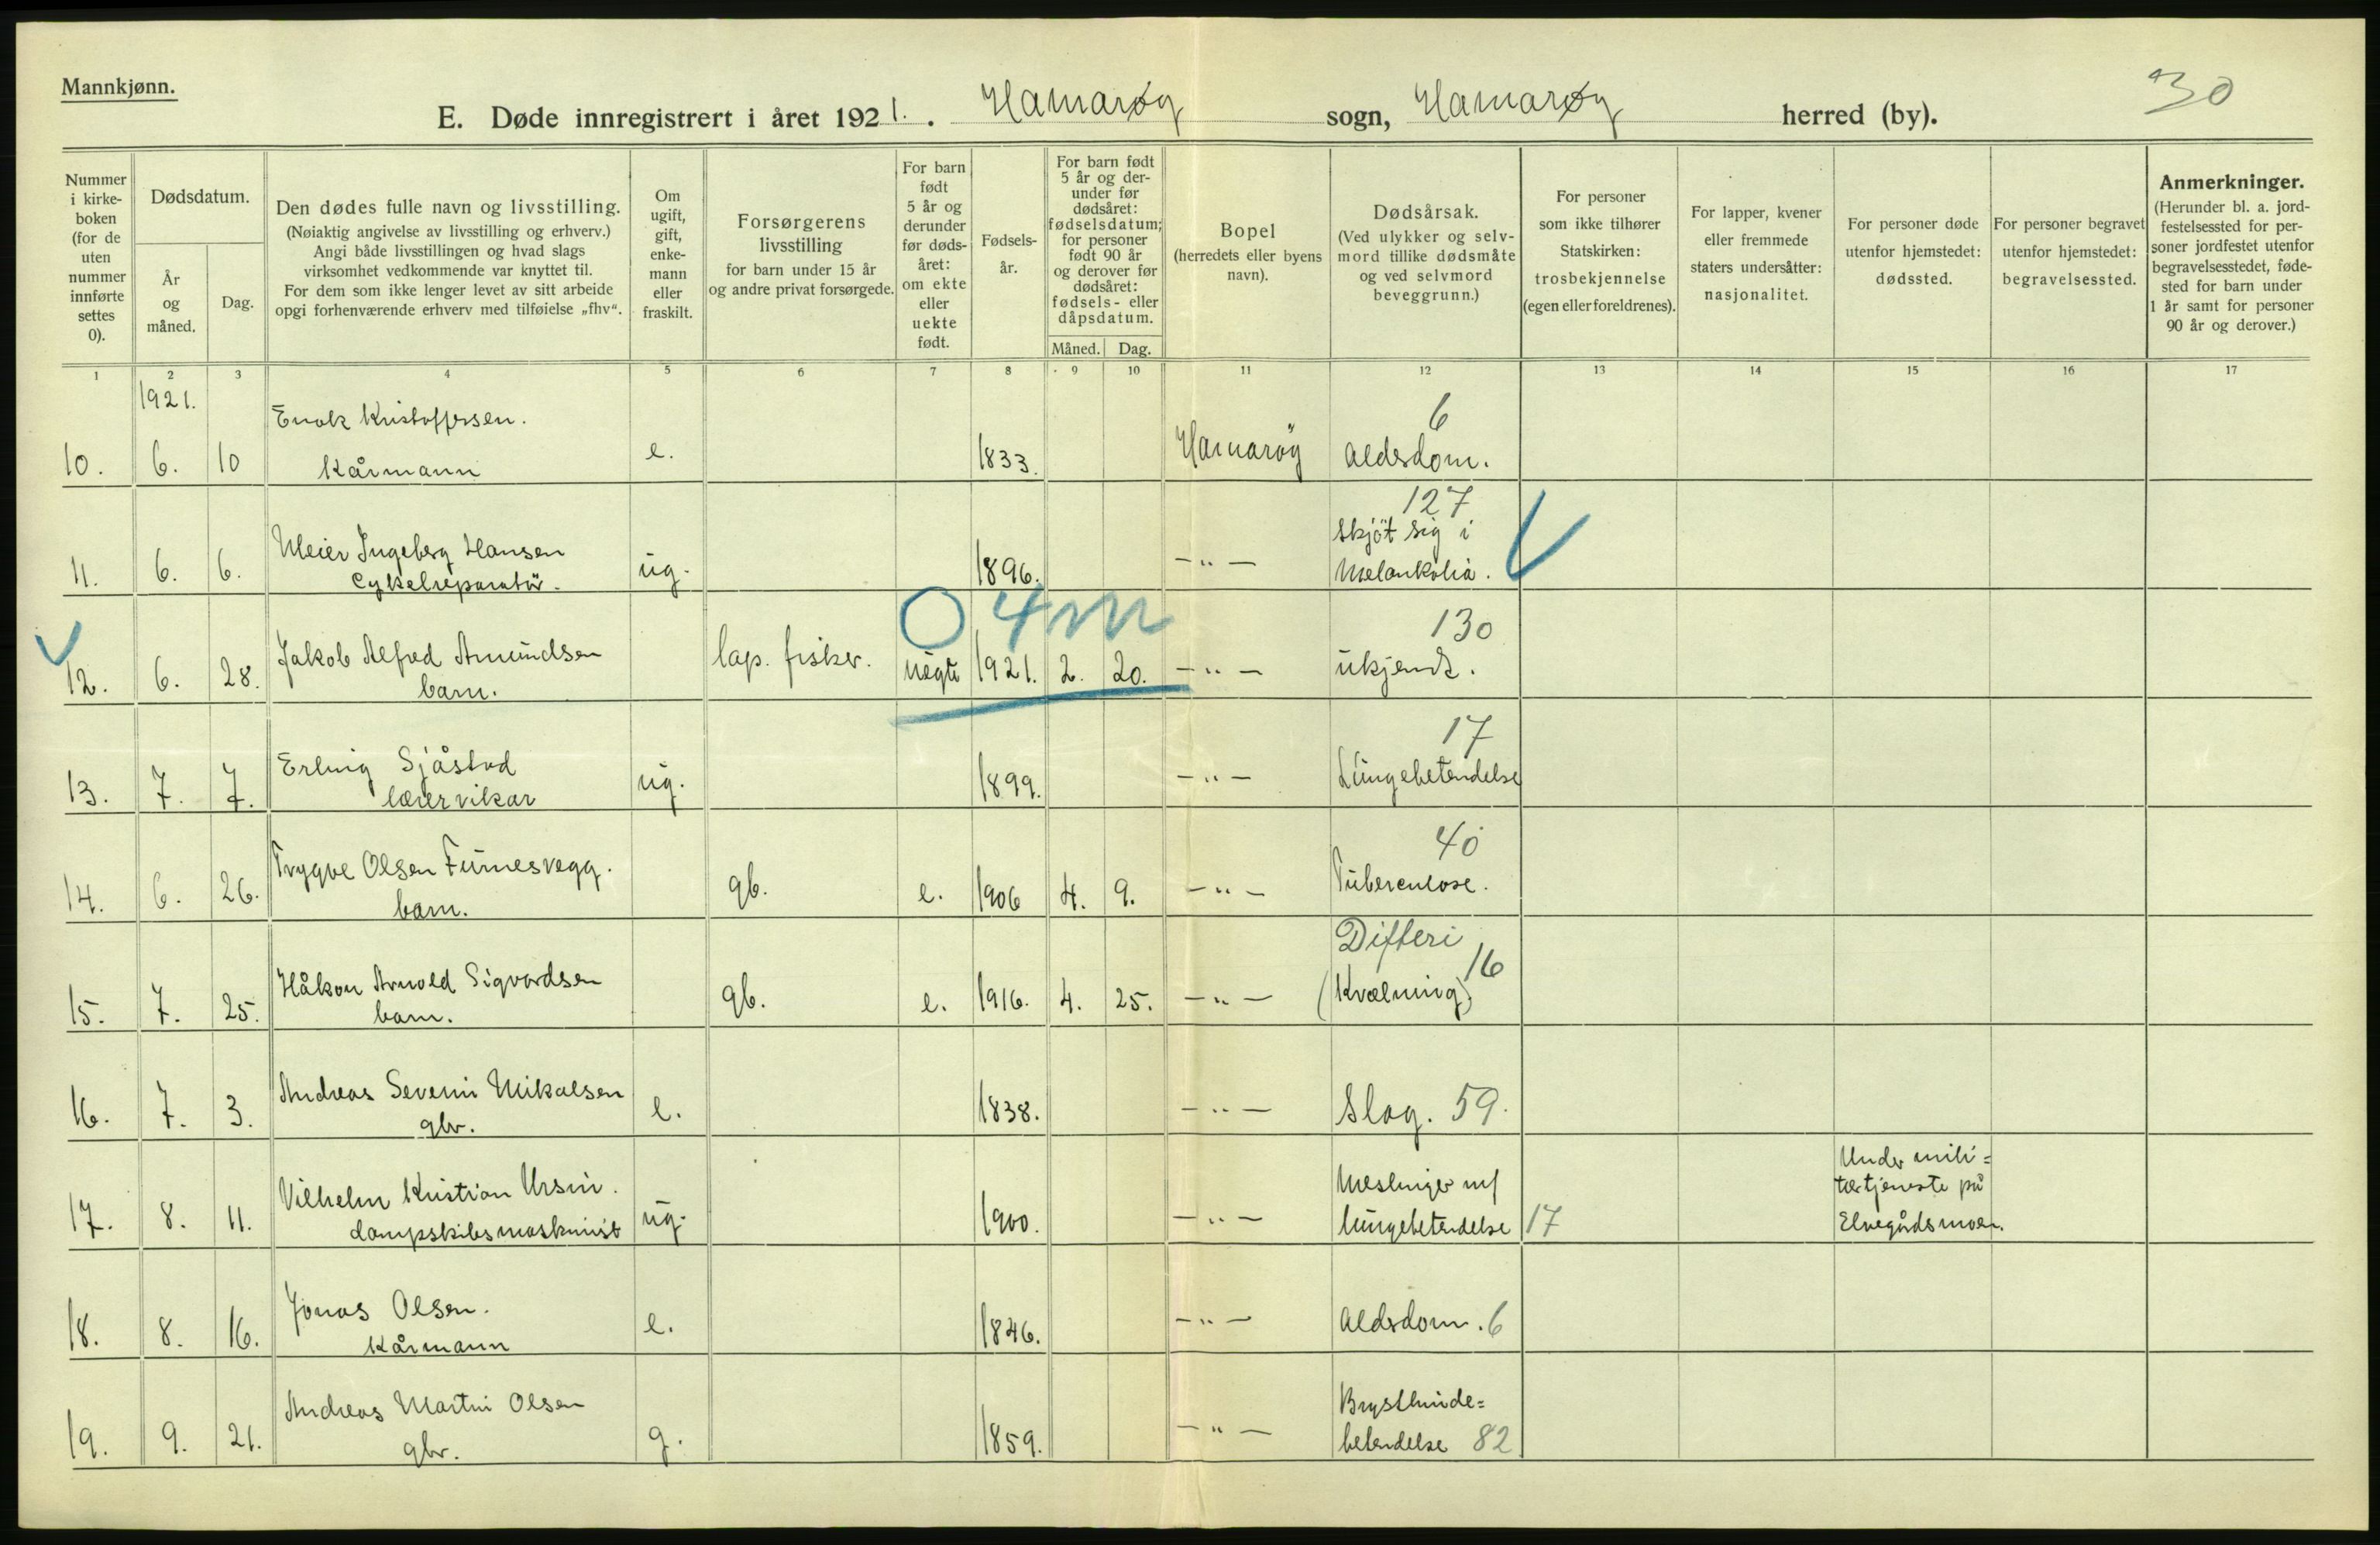 Mannkjønn.
30
E. Døde innregistrert i året 1921. Hamarøy sogn, Hamarøy herred (by).
Nummer
i kirke-
boken
(for de
uten
nummer
innførte
settes
0).
Dødsdatum.
År
og
måned.
Dag.
Den dødes fulle navn og livsstilling.
(Nøiaktig angivelse av livsstilling og erhverv.)
Angi både livsstillingen og hvad slags
virksomhet vedkommende var knyttet til.
For dem som ikke lenger levet av sitt arbeide
opgi forhenværende erhverv med tilføielse „fhv“.
Om
ugift,
gift,
enke-
mann
eller
fraskilt.
Forsørgerens
livsstilling
for barn under 15 år
og andre privat forsørgede.
For barn
født
5 år og
derunder
før døds-
året:
om ekte
eller
uekte
født.
Fødsels-
år.
For barn født
5 år og der-
under før
dødsåret:
fødselsdatum;
for personer
født 90 år
og derover før
dødsåret:
fødsels- eller
dåpsdatum.
Måned. Dag.
Bopel
(herredets eller byens
navn).
Dødsårsak.
(Ved ulykker og selv-
mord tillike dødsmåte
og ved selvmord
beveggrunn.)
For personer
som ikke tilhører
Statskirken:
trosbekjennelse
(egen eller foreldrenes).
For lapper, kvener
eller fremmede
staters undersåtter:
nasjonalitet.
For personer døde
utenfor hjemstedet:
dødssted.
For personer begravet
utenfor hjemstedet:
begravelsessted.
Anmerkninger.
(Herunder bl. a. jord-
festelsessted for per-
soner jordfestet utenfor
begravelsesstedet, føde-
sted for barn under
1 år samt for personer
90 år og derover.)
1 2 3 4 5 6 7 8 9 10 11 12 13 14 15 16 17
1921.
Enok Kristoffersen. 6
10. 6. 10 Kårmann e. 1833. Hamarøy Alderdom.
127
Meier Ingeberg Hansen Skjøt sig i
11. 6. 6. Cykelreparatør. ug. 1896. -"- Melankolia.
O 4 m 130
Jakob Alfred Amundsen
12. 6. 28. barn. lap. fisker. uegte 1921. 2. 20. -"- ukjendt.
17
Erling Sjåstad
13. 7. 7. lærervikar ug. 1899. -"- Lungebetendelse
40
Trygve Olsen Furnesvegg.
14. 6. 26. barn. gb. e. 1906 4. 9. -"- Tuberculose.
Difteri
Håkon Arnold Sigvardsen 16
15. 7. 25. barn. gb. e. 1916. 4. 25. -"- (Kvælning)
Andreas Severin Mikalsen
16. 7. 3. gbr. e. 1838. -"- Slag. 59.
Under mili=
Vilhelm Kristian Ursin. Meslinger m/ tærtjeneste på
17. 8. 11. dampskibsmaskinist ug. 1900. -"- lungebetendelse 17 Elvegårdsmoen.
Jonas Olsen.
18. 8. 16. Kårmann e. 1846. -"- Alderdom. 6
Andreas Martin Olsen Brysthinde=
19. 9. 21. gbr. g. 1859. -"- betendelse 82